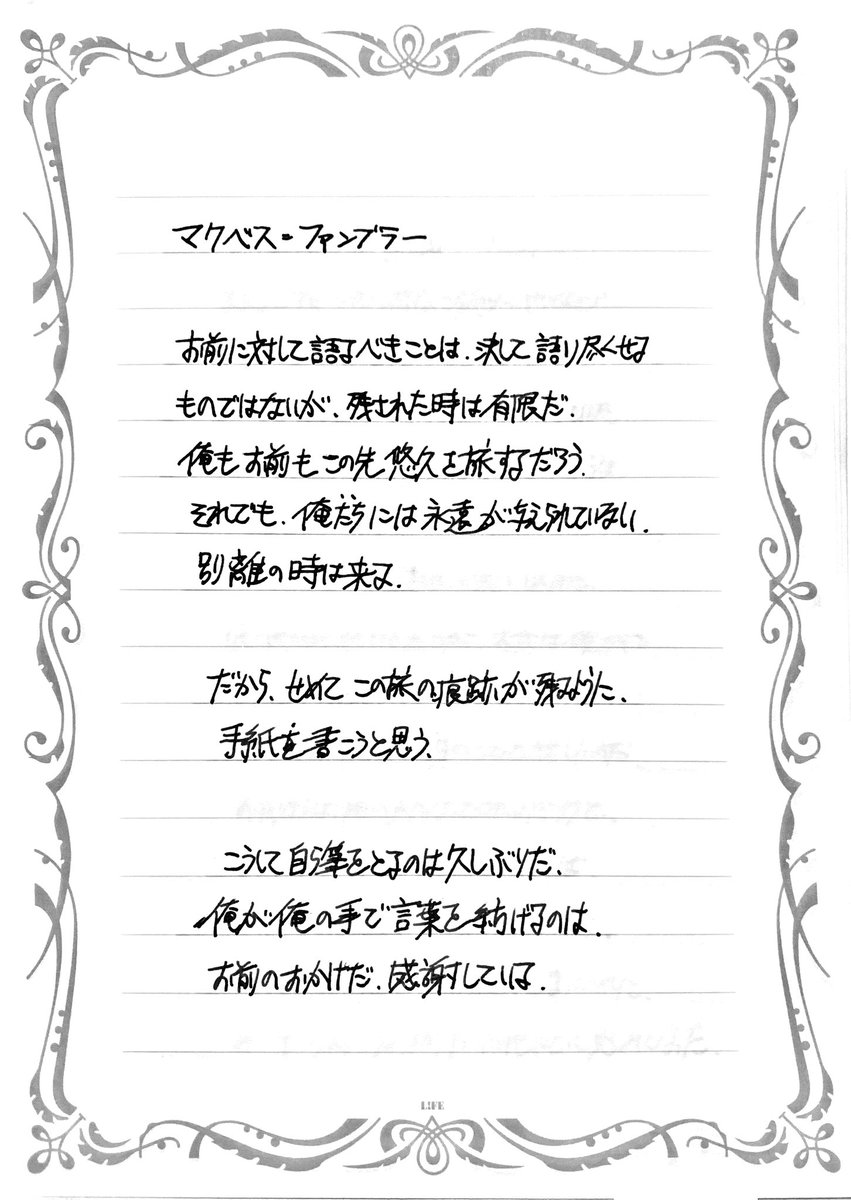 マクベス=ファンブラー
お前に対して語るべきことは、決して語り尽くせる
ものではないが、残された時は有限だ。
俺もお前もこの先悠久を旅するだろう。
それでも、俺たちには永遠が与えられていない。
別離の時は来る。
だから、せめてこの旅の痕跡が残るように、
手紙を書こうと思う。
こうして自ら筆をとるのは久しぶりだ。
俺が俺の手で言葉を紡げるのは、
お前のおかげだ、感謝している。
L!FE